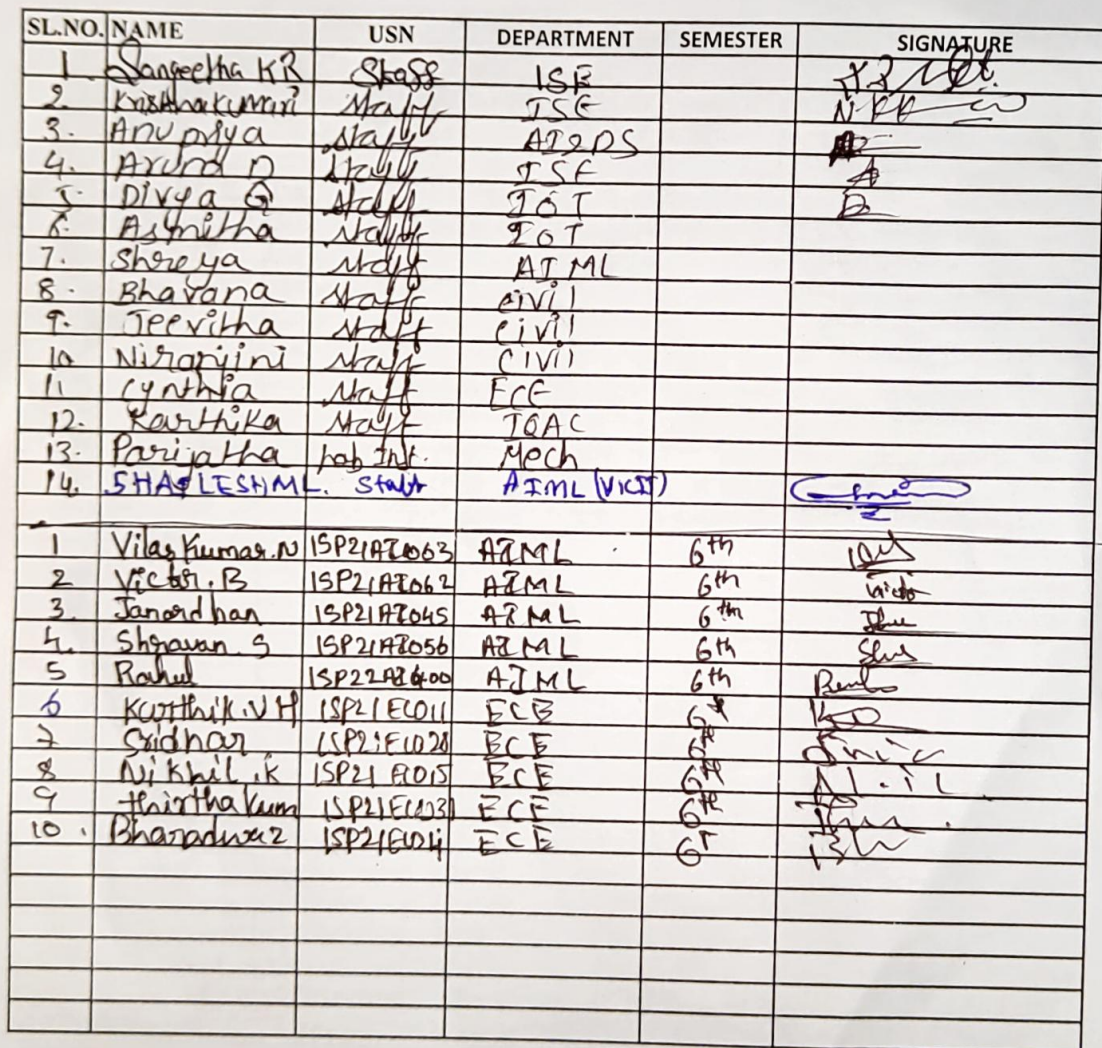 SL.NO. NAME USN DEPARTMENT SEMESTER SIGNATURE
1. Sangeetha KR Staff ISE
2. Krishnakumari Staff ISE
3. Anupriya Staff AI&DS
4. Aruna D Staff ISE
5. Divya G Staff IOT
6. Asmitha Staff IOT
7. Shreya Staff AIML
8. Bhavana Staff civil
9. Jeevitha Staff civil
10 Niranjini Staff civil
11 Cynthia Staff ECE
12. Karthika Staff IQAC
13. Parijatha Lab Inst. Mech
14. Staff AIML
1 Vilas Kumar.N 1SP21AI063 AIML 6th
2 Victor.B 1SP21AI062 AIML 6th
3. Janardhan 1SP21AI045 AIML 6th
4. Shravan.S 1SP21AI056 AIML 6th
5 Rahul 1SP22AI400 AIML 6th
6 Karthik.V H 1SP21EC011 ECE 6th
7 Sridhar 1SP21EC028 ECE 6th
8 Nikhil.K 1SP21EC015 ECE 6th
9 thirtha kum ECE 6th
10. ECE 6